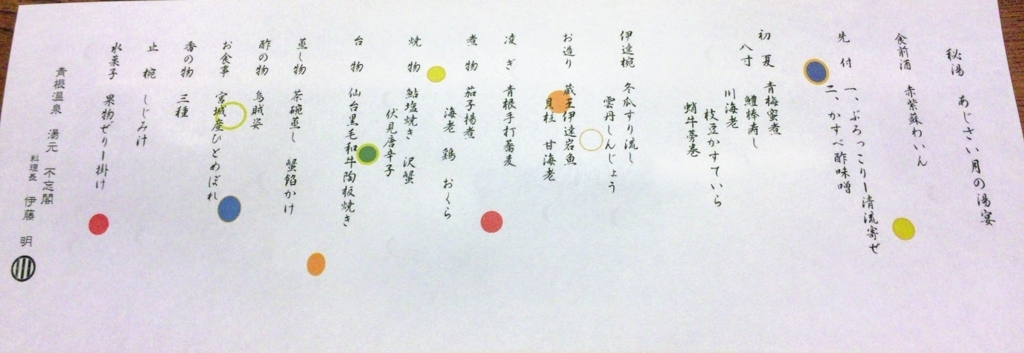 秘湯 あじさい月の湯宴
食前酒 赤紫蘇わいん
先付 一、ぶろっこりー清流寄せ
二、かすべ酢味噌
初夏 青梅蜜煮
八寸 鱧棒寿し
川海老
枝豆かすていら
蝸牛蒡巻
伊達椀 冬瓜すり流し
雲丹しんじょう
お造り 蔵王伊達岩魚
貝柱 甘海老
凌ぎ 青根手打蕎麦
煮物 茄子揚煮
海老 鶏 おくら
焼物 鮎塩焼き 沢蟹
伏見唐辛子
台物 仙台黒毛和牛陶板焼き
蒸し物 茶碗蒸し 蟹餡かけ
酢の物 烏賊姿
お食事 宮城産ひとめぼれ
香の物 三種
止椀 しじみ汁
水菓子 果物ぜりー掛け
青根温泉 湯元 不忘閣
料理長 伊藤 明